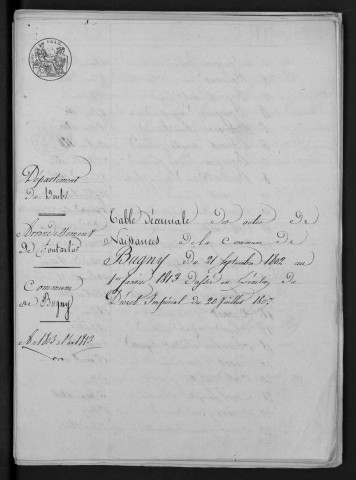 Département
Du Doubs
Arrondissement
De Pontarlier
Commune
de Bugny
Table décennale des actes de
Naissances de la commune de
Bugny du 21 septembre 1802 au
1er janvier 1813 dressée en Exécution du
Décret Impérial du 20 juillet 1807